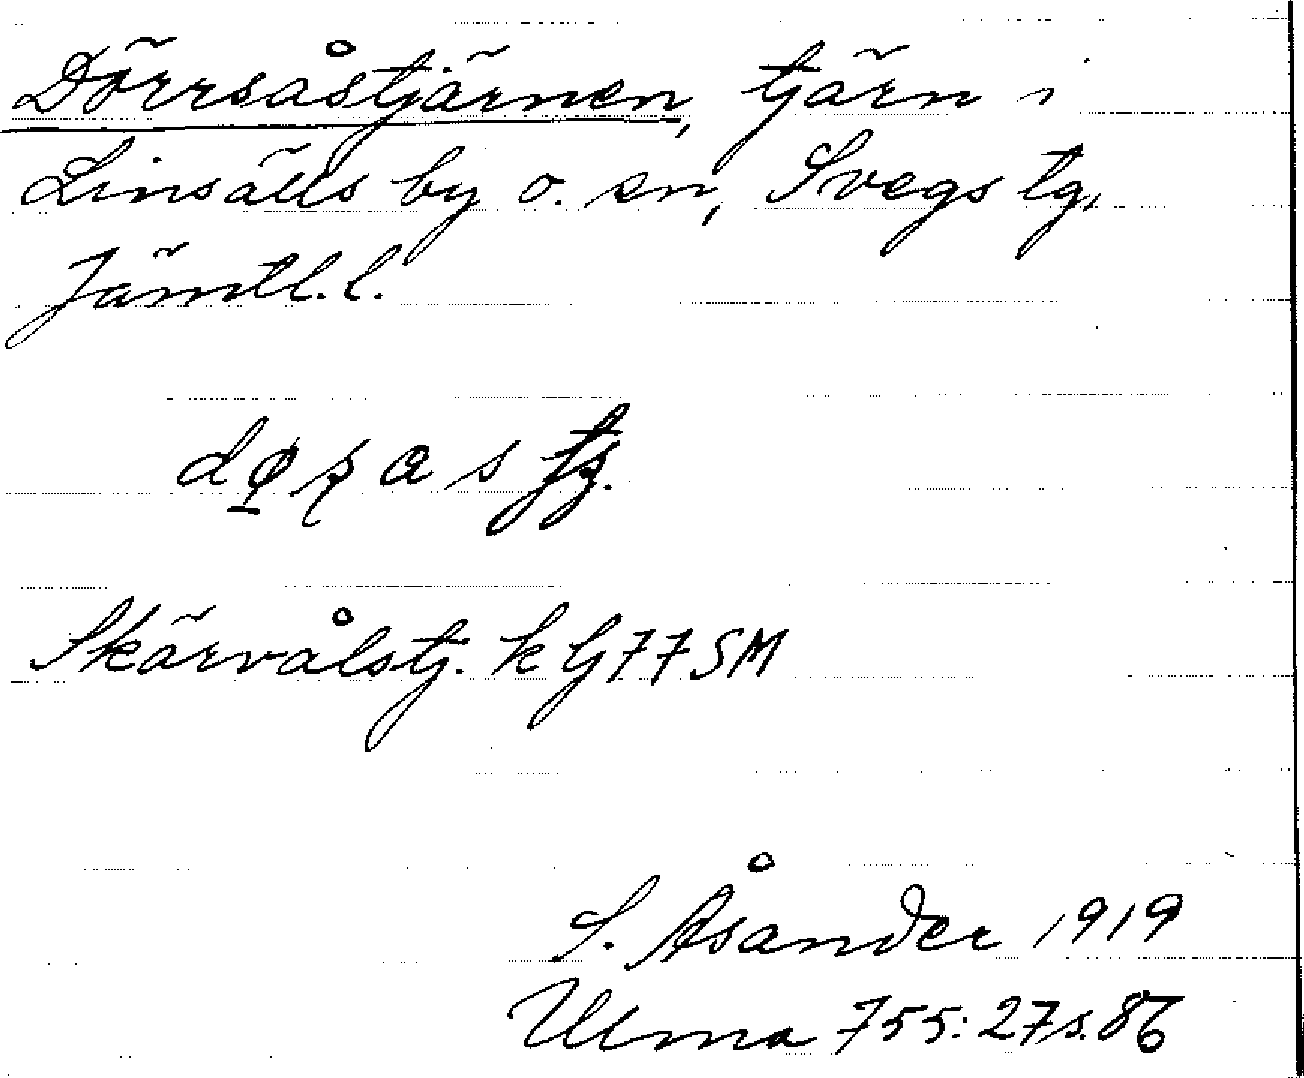 Dörrsåstjärnen, tjärn i
Linsälls by o. sn, Svegs tg,
Jämtl. l.
Skärvålstj. k Gj 77 SM
S. Åsander 1919
Ulma 755:27 s. 86